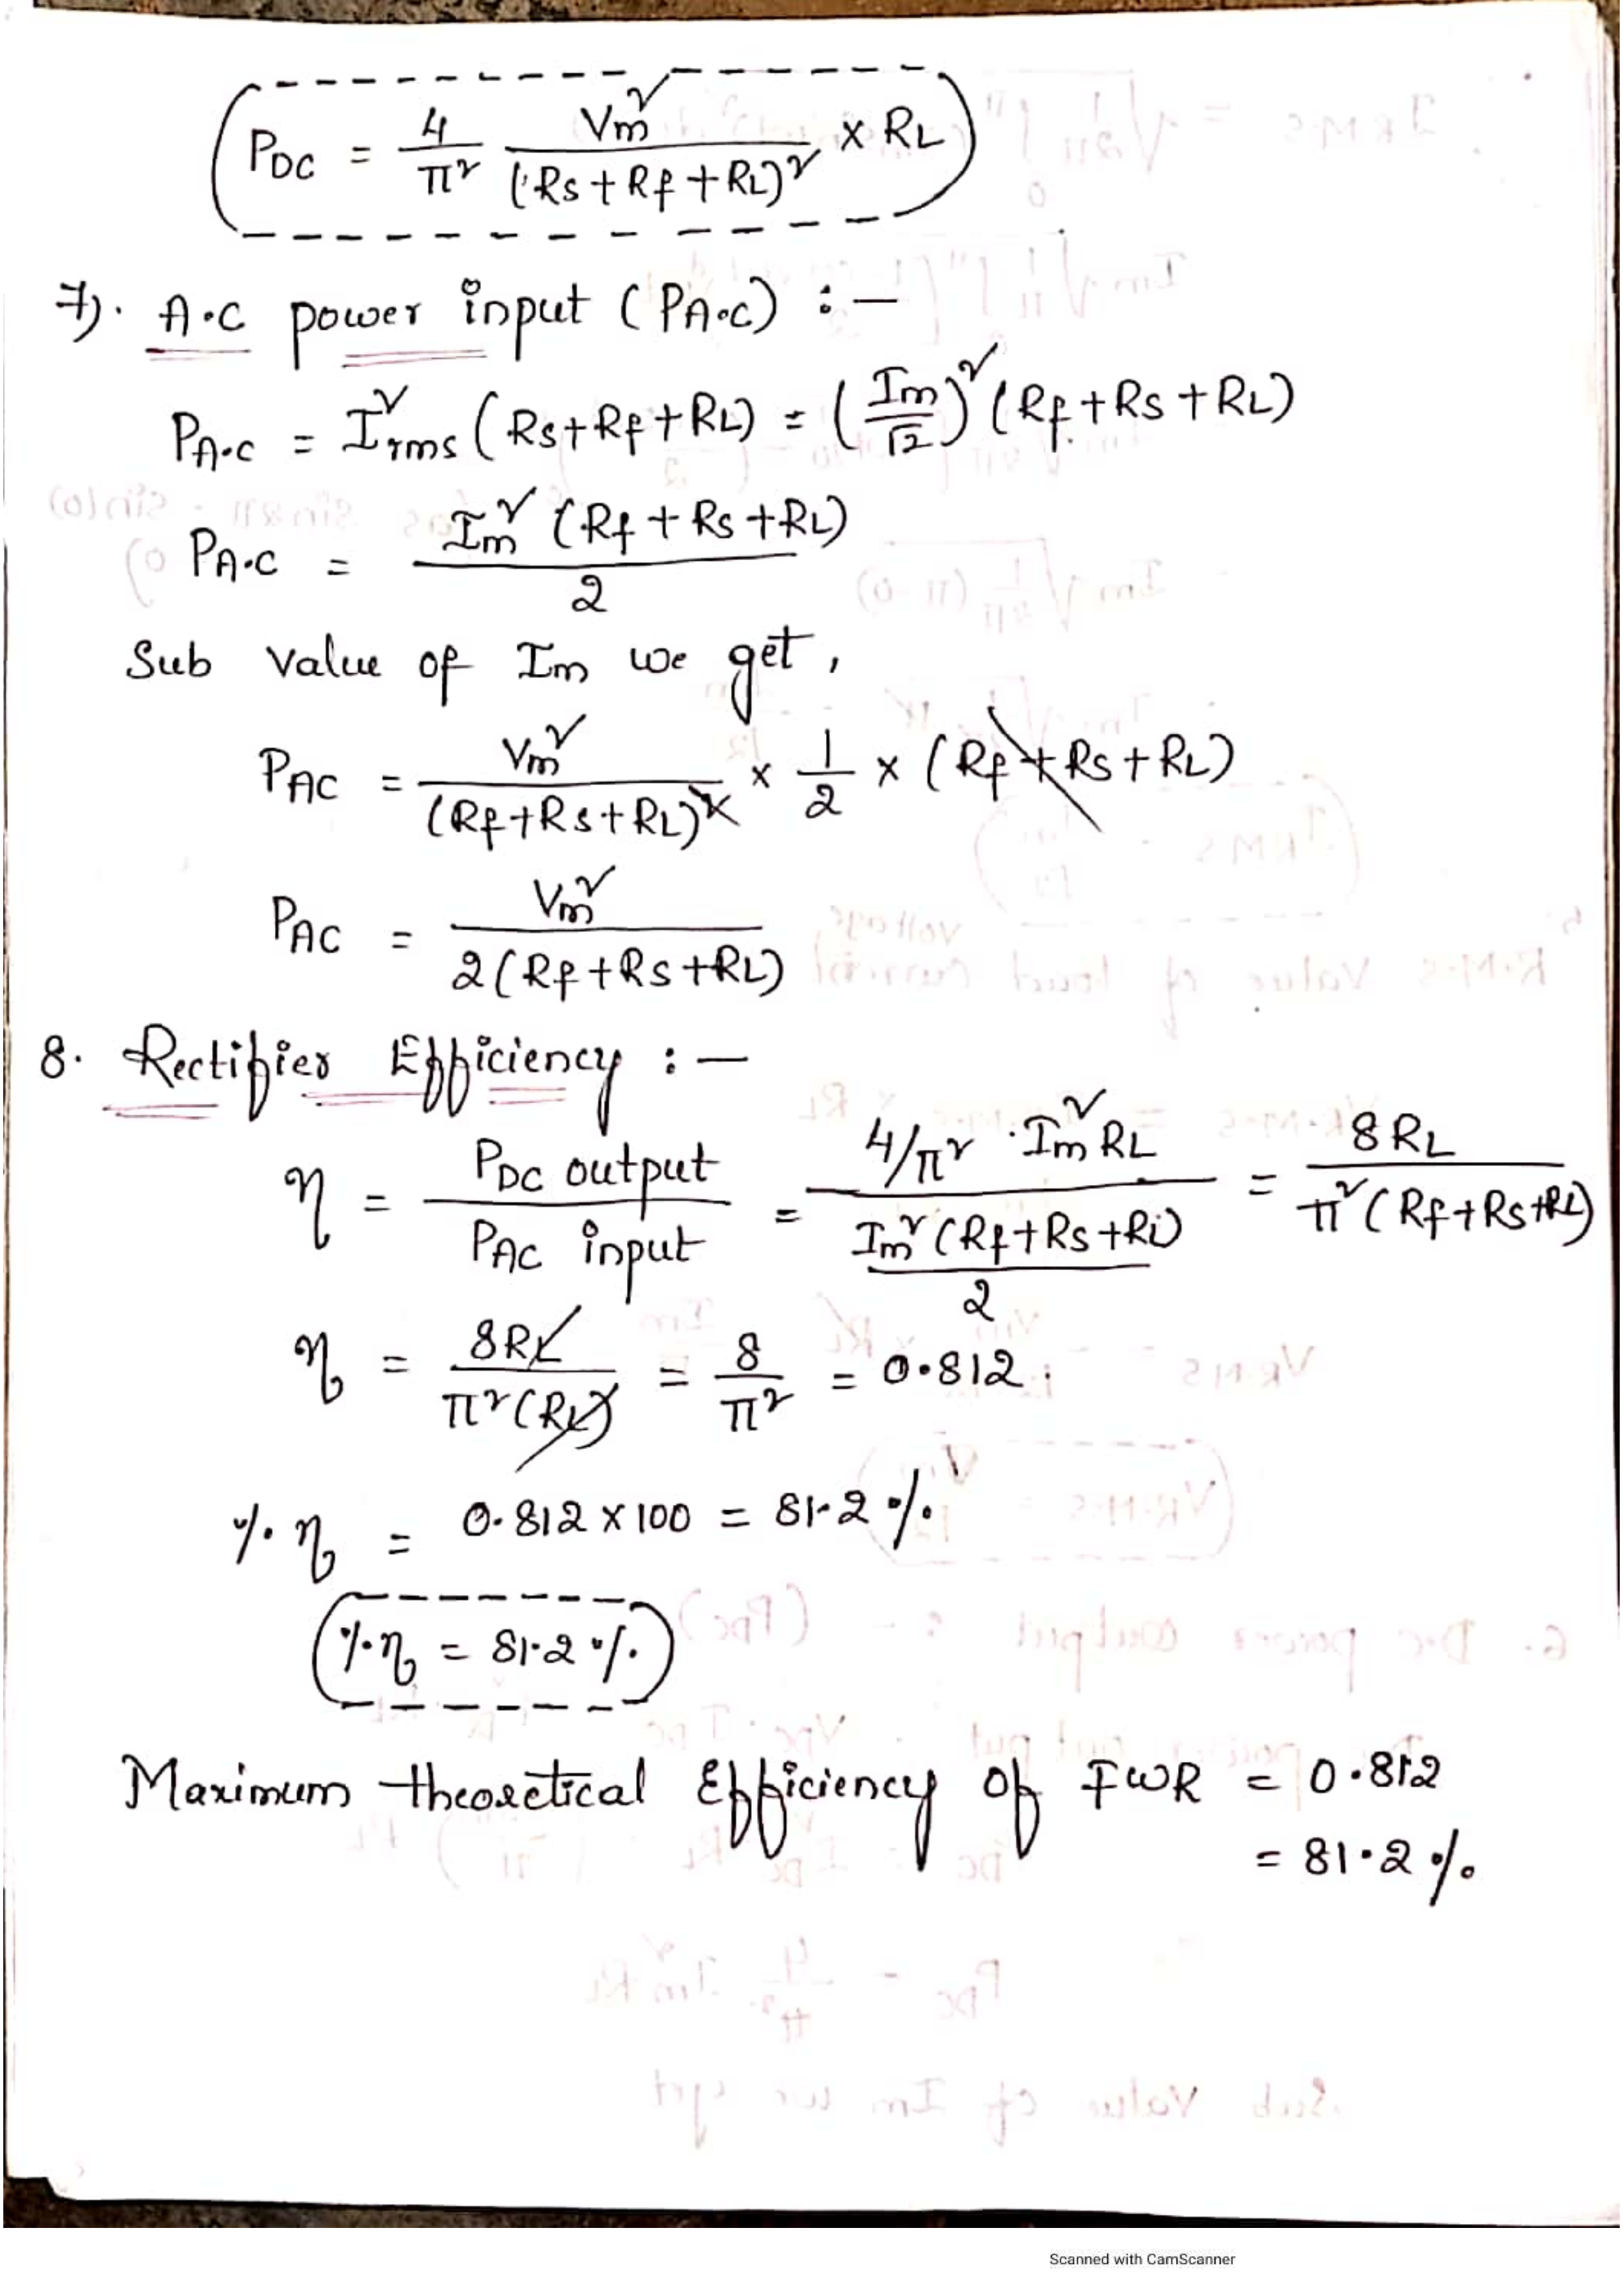 P_DC = 4/π² V_m²/(Rs + Rf + RL)² × RL
7). A.C power input (P_A.C) :-
P_A.C = I²_rms (Rs+Rf+RL) = (Im/√2)² (Rf + Rs + RL)
P_A.C = Im² (Rf + Rs + RL)/2
Sub value of Im we get,
P_AC = Vm²/(Rf+Rs+RL)² × 1/2 × (Rf + Rs + RL)
P_AC = Vm²/2(Rf + Rs + RL)
8. Rectifier Efficiency :-
η = P_DC output/P_AC input = 4/π² · Im² RL/(Im² (Rf+Rs+RL)/2) = 8RL/π² (Rf+Rs+RL)
η = 8RL/π²(RL) = 8/π² = 0.812.
% η = 0.812 × 100 = 81.2 %
% η = 81.2 %
Maximum theoretical Efficiency of FWR = 0.812
= 81.2 %
Scanned with CamScanner